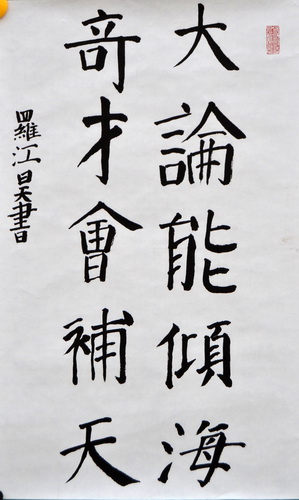 大論能傾海
奇才會補天
羅江日天書